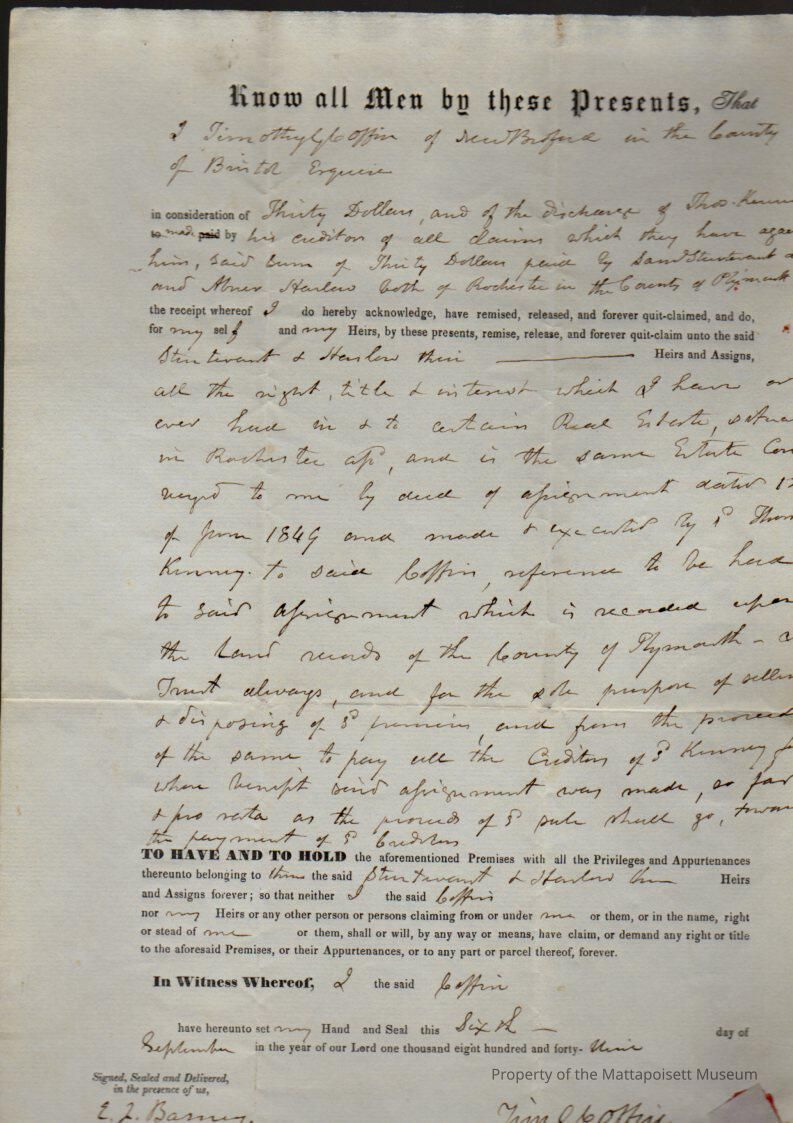 Know all Men by these Presents, That
I Timothy G Coffin of New Bedford in the County
of Bristol Esquire
in consideration of Thirty Dollars, and of the discharge of Thos. Kenn
to made paid by his creditors of all claims which they have agai
him, said sum of Thirty Dollars paid by Sturtevant
and Abner Harlow both of Rochester in the County of Plymouth
the receipt whereof I do hereby acknowledge, have remised, released, and forever quit-claimed, and do,
for my self and my Heirs, by these presents, remise, release, and forever quit-claim unto the said
Sturtevant & Harlow their Heirs and Assigns,
all the right, title & interest which I have or
ever had in & to certain Real Estate, situa
in Rochester afs, and is the same Estate Con
veyed to me by deed of assignment dated 1
of June 1849 and made & executed by sd Thom
Kenney to said Coffin, reference to be had
to said assignment which is recorded upon
the Land records of the County of Plymouth -
Trust always, and for the sole purpose of sellin
& disposing of sd premises, and from the proceed
of the same to pay all the Creditors of sd Kenney fo
whose benefit said assignment was made, so far
& pro rata as the proceeds of sd sale shall go, towar
the payment of sd Creditors
TO HAVE AND TO HOLD the aforementioned Premises with all the Privileges and Appurtenances
thereunto belonging to them the said Sturtevant & Harlow their Heirs
and Assigns forever; so that neither I the said Coffin
nor my Heirs or any other person or persons claiming from or under me or them, or in the name, right
or stead of me or them, shall or will, by any way or means, have claim, or demand any right or title
to the aforesaid Premises, or their Appurtenances, or to any part or parcel thereof, forever.
In Witness Whereof, I the said Coffin
have hereunto set my Hand and Seal this Sixth day of
September in the year of our Lord one thousand eight hundred and forty- Nine
Property of the Mattapoisett Museum
Signed, Sealed and Delivered,
in the presence of us,
E. L. Barney. Tim G Coffin